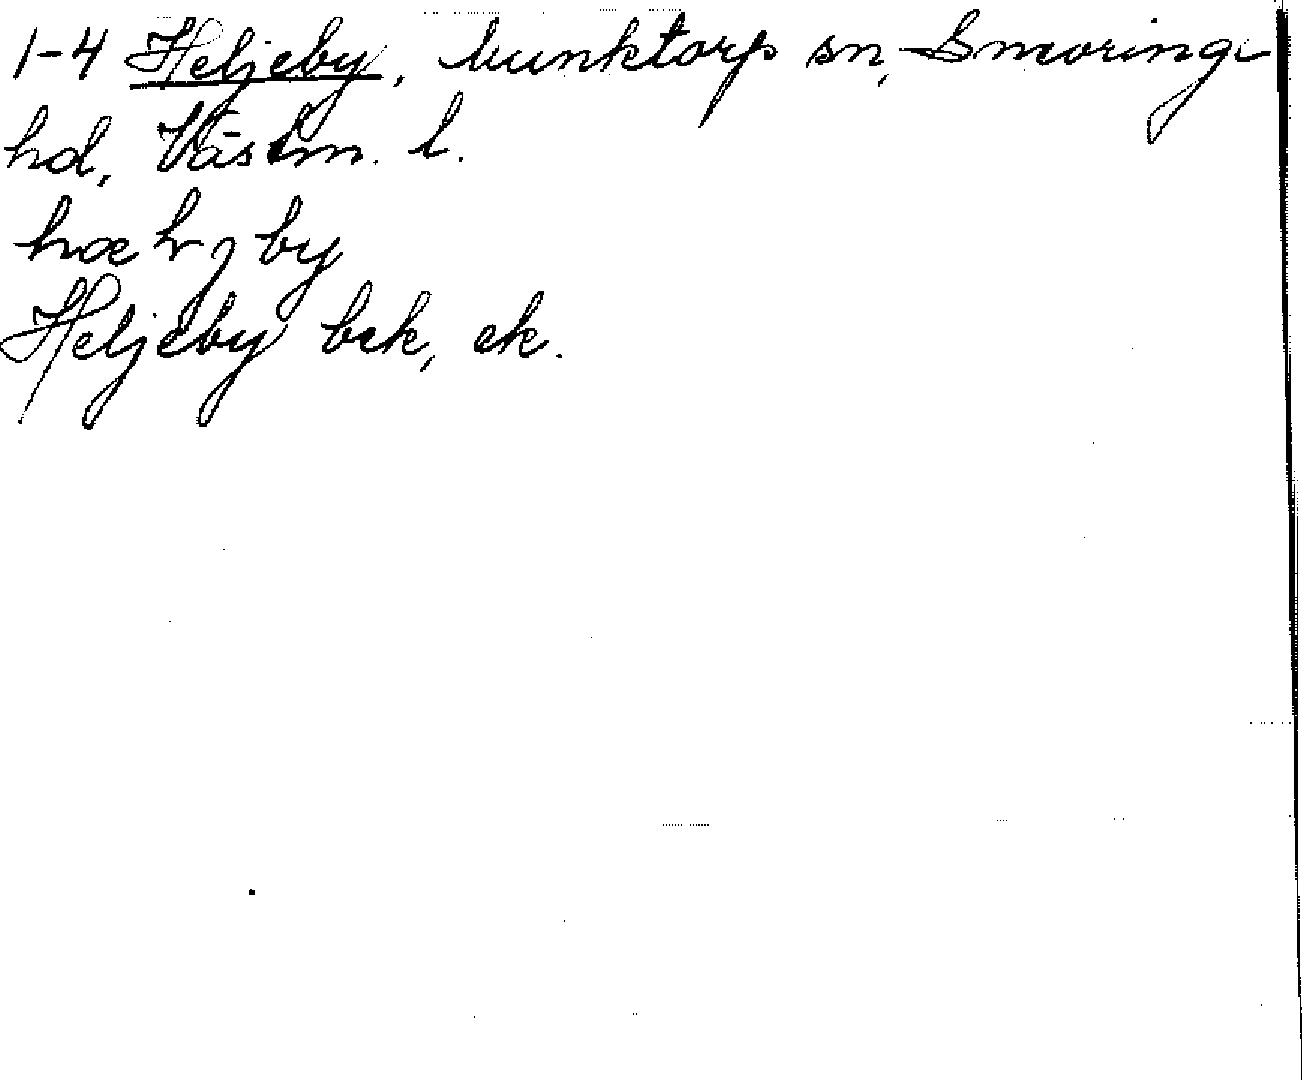 1-4 Heljeby, Munktorp sn, Snevringe
hd, Västm. l.
hæljby
Heljeby bek, ek.